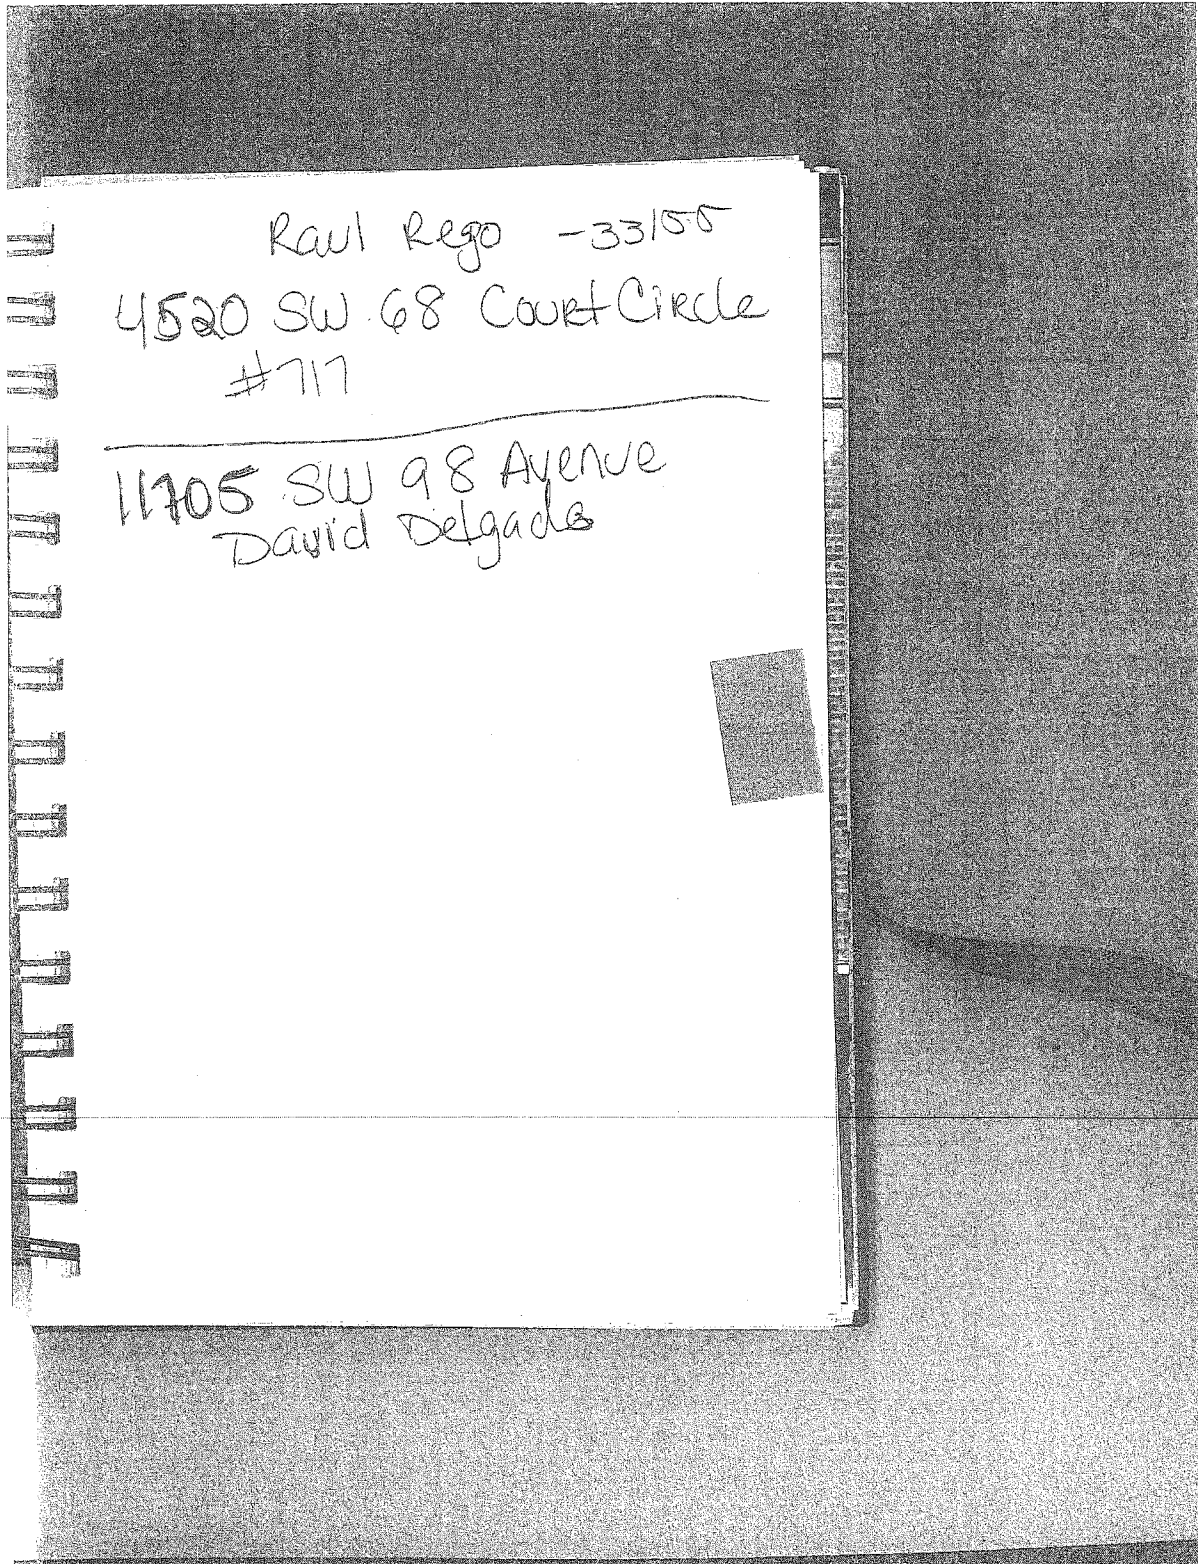 Raul Rego - 33155
4520 SW 68 Court Circle
#717
11705 SW 98 Avenue
David Delgado